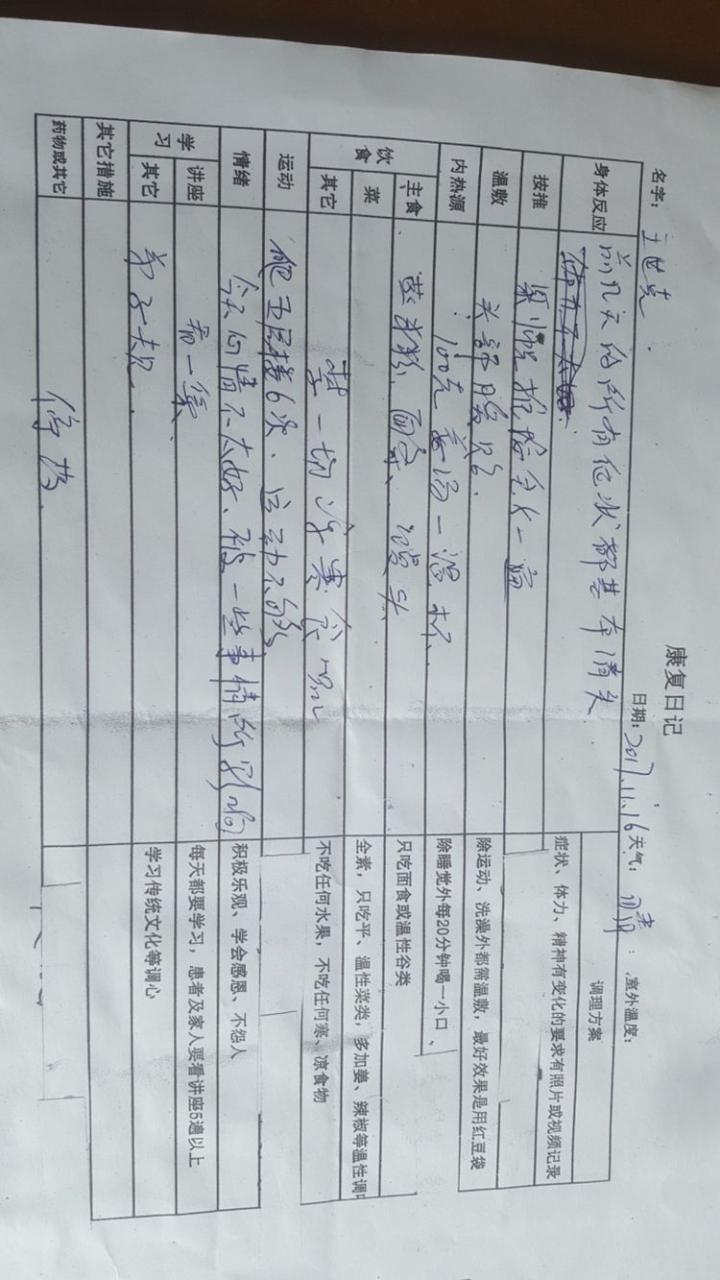 康复日记
名字： 王世克 日期：2017.11.16 天气：晴 室外温度：
调理方案
身体反应 前几天的所有症状都基本消失 症状、体力、精神有变化的要求有照片或视频记录
按推
温敷 头部腹部. 除运动、洗澡外都需温敷，最好效果是用红豆袋
内热源 100克姜汤一温杯. 除睡觉外每20分钟喝一小口、
饮食 主食 面食、馒头 只吃面食或温性谷类
菜 全素，只吃平、温性菜类，多加姜、辣椒等温性调
其它 禁一切水果 不吃任何水果，不吃任何寒、凉食物
运动 爬五层楼6次. 运动不够
情绪 今天心情不太好、被一些事情所影响 积极乐观、学会感恩、不怨人
学习 讲座 看一集 每天都要学习，患者及家人要看讲座5遍以上
其它 弟子规. 学习传统文化等调心
其它措施
药物或其它 停药.